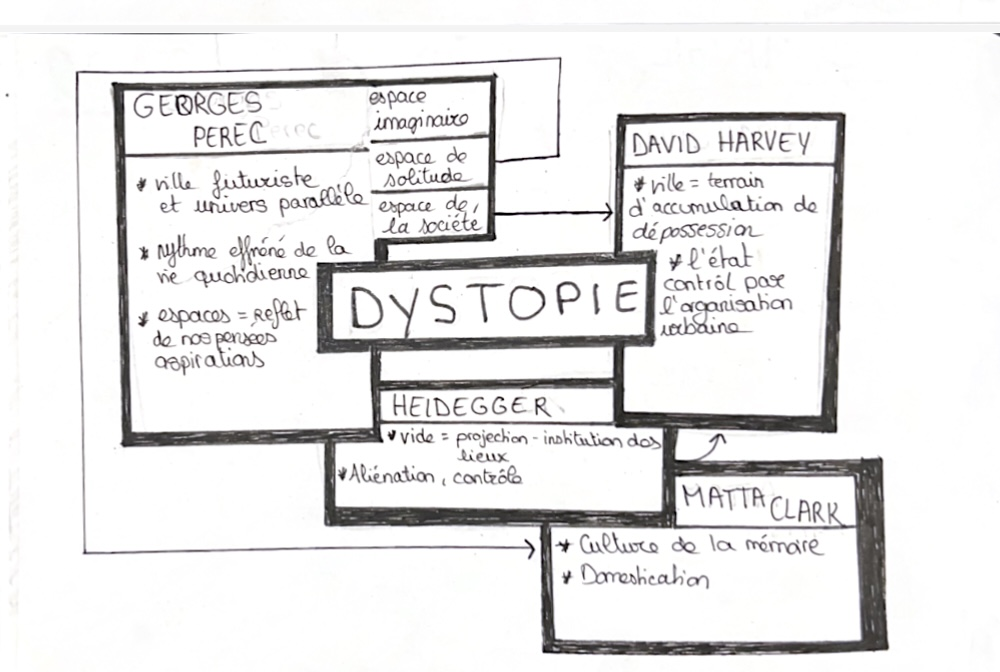 GEORGES
PEREC
espace
imaginaire
espace de
solitude
espace de
la société
* ville futuriste
et univers parallèle
* rythme effréné de la
vie quotidienne
* espaces = reflet
de nos pensées
aspirations
DYSTOPIE
DAVID HARVEY
* ville = terrain
d'accumulation de
dépossession
* l'état
contrôl par
l'organisation
urbaine
HEIDEGGER
* vide = projection - institution des
lieux
* Aliénation, contrôle
MATTA
CLARK
* Culture de la mémoire
* Domestication